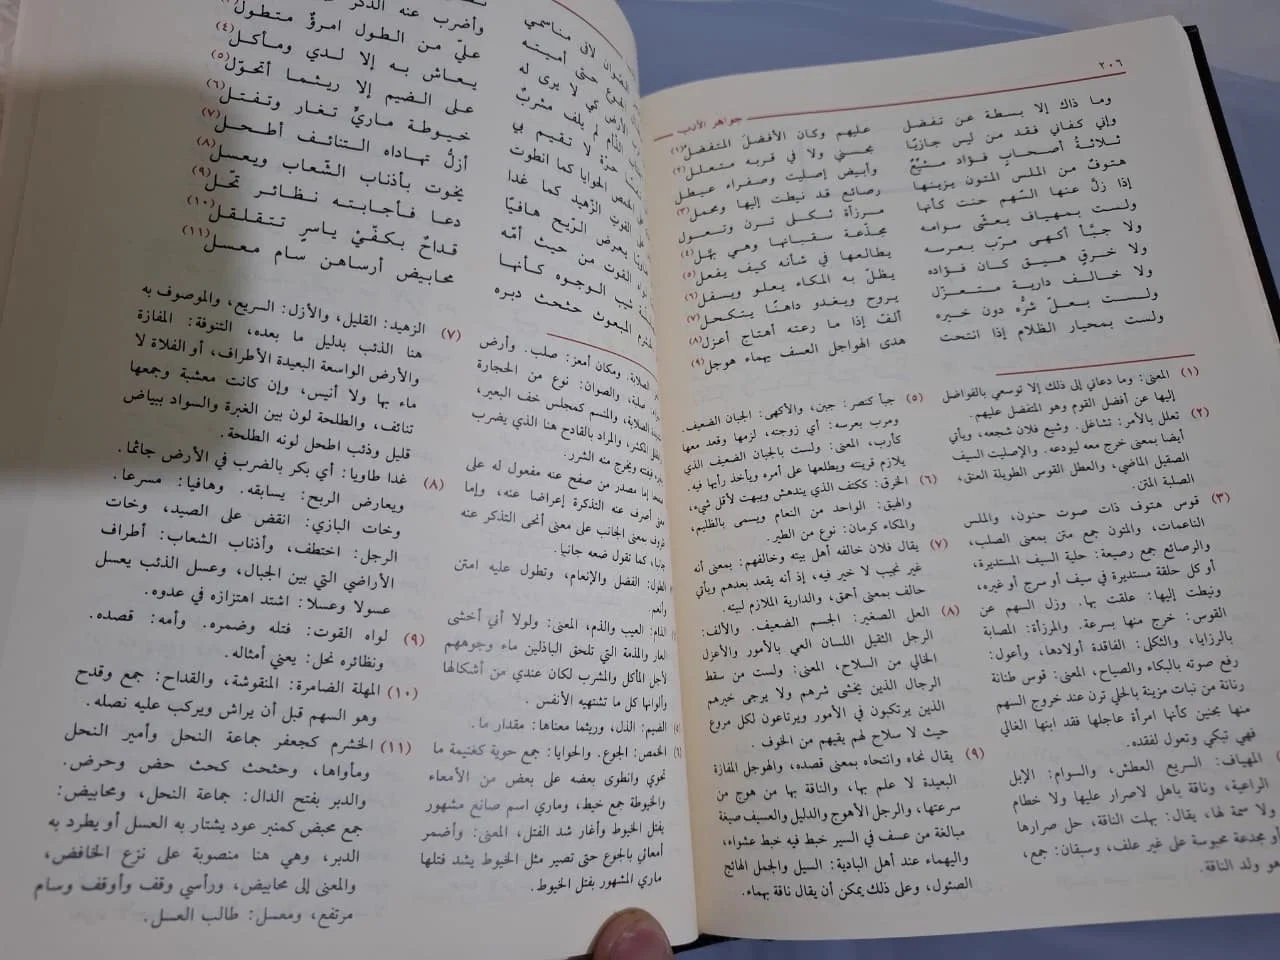 ٢٠٦
جواهر الأدب
وما ذاك إلا بسطة عن تفضل عليهم وكان الأفضل المتفضل (١)
وإني كفاني فقد من ليس جازيًا بحسنى ولا في قربه متعلل (٢)
ثلاثةُ أصحابٍ فؤاد مشيّعٌ وأبيض إصليت وصفراء عيطل
هتوفٌ من الملس المتون يزينها رصائع قد نيطت إليها ومحمل (٣)
إذا زلّ عنها السّهم حنت كأنها مرزأة ثكل ترن وتعول
ولست بمهياف يعشّي سوامه مجدّعة سقبانها وهي بهّل (٤)
ولا جبّأ أكهى مرّب بعرسه يطالعها في شأنه كيف يفعل (٥)
ولا خرقٍ هيق كان فؤاده يظلّ به المكاء يعلو ويسفل (٦)
ولا خالف دارية متعزّل يروح ويغدو داهنًا يتكحل (٧)
ولست بعلّ شرُّه دون خيره ألفّ إذا ما رعته أهتاج أعزل (٨)
ولست بمحيار الظلام إذا انتحت هدى الهواجل العسف يهماء هوجل (٩)
(١) المعنى: وما دعاني إلى ذلك إلا توسعي بالفواضل
إليها عن أفضل القوم وهو المتفضل عليهم.
(٢) تعلل بالأمر: تشاغل. وشيع فلان شجعه، ويأتي
أيضا بمعنى خرج معه ليودعه. والإصليت السيف
الصقيل الماضي، والعطل القوس الطويلة العنق،
الصلبة المتن.
(٣) قوس هتوف ذات صوت حنون، والملس
الناعمات، والمتون جمع متن بمعنى الصلب،
والرصائع جمع رصيعة: حلية السيف المستديرة،
أو كل حلقة مستديرة في سيف أو سرج أو غيره،
ونيطت إليها: علقت بها. وزل السهم عن
القوس: خرج منها بسرعة. والمرزأة: المصابة
بالرزايا، والثكل: الفاقدة أولادها، وأعول:
رفع صوته بالبكاء والصياح، المعنى: قوس طنانة
رنانة من نبات مزينة بالحلي ترن عند خروج السهم
منها بحنين كأنها امرأة عاجلها فقد ابنها الغالي
فهي تبكي وتعول لفقده.
المهياف: السريع العطش، والسوام: الإبل
الراعية، وناقة باهل لاصرار عليها ولا خطام
ولا سمة لها، يقال: بهلت الناقة، حل صرارها
مجدعة محبوسة على غير علف، وسبقان: جمع،
ولد الناقة.
(٥) جبأ كتصر: جبن، والأكهى: الجبان الضعيف.
ومرب بعرسه: أي زوجته، لزمها وقعد معها
كأرب، المعنى: ولست بالجبان الضعيف الذي
يلازم قرينته ويطلعها على أمره ويأخذ رأيها فيه.
(٦) الخرق: ككتف الذي يندهش ويبهت لأقل شيء،
والهيق: الواحد من النعام ويسمى بالظليم،
والمكاء كرمان: نوع من الطير.
(٧) يقال فلان خالفه أهل بيته وخالفهم: بمعنى أنه
غير نجيب لا خير فيه، إذ أنه يقعد بعدهم ويأتي
حالف بمعنى أحمق، والدارية الملازم لبيته.
(٨) العل الصغير: الجسم الضعيف. والألف:
الرجل الثقيل اللسان العي بالأمور والأعزل
الخالي من السلاح، المعنى: ولست من سقط
الرجال الذين يخشى شرهم ولا يرجى خيرهم
الذين يرتبكون في الأمور ويرتاعون لكل مروع
حيث لا سلاح لهم يقيهم من الخوف.
(٩) يقال نحاه وانتحاه بمعنى قصده، والهوجل المفازة
البعيدة لا علم بها، والناقة بها من هوج من
سرعتها، والرجل الأهوج والدليل والعسيف صيغة
مبالغة من عسف في السير خبط فيه خبط عشواء،
واليهماء عند أهل البادية: السيل والجمل الهائج
الصئول، وعلى ذلك يمكن أن يقال ناقة يهماء.
لاقى مناسمي
الجوع حتى أميته وأضرب عنه الذكر
الأرض كي لا يرى له عليّ من الطول امرؤٌ متطول
الذّام لم يلف مشربٌ يعاش به إلا لدي ومأكل (٤)
حرّة لا تقيم بي على الضيم إلا ريثما أتحوّل (٥)
الخمص الحوايا كما انطوت خيوطة ماريٍّ تغار وتفتل (٦)
القوت الزّهيد كما غدا أزلُّ تهاداه التنائف أطحل (٧)
يعرض الرّيح هافيًا يخوت بأذناب الشّعاب ويعسل (٨)
القوت من حيث أمّه دعا فأجابته نظائر نحّل (٩)
شيب الوجوه كأنها قداحٌ بكفّيْ ياسرٍ تتقلقل (١٠)
المبعوث حثحث دبره محابيض أرساهن سام معسل (١١)
الصلابة. ومكان أمعز: صلب. وأرض
صلة، والصوان: نوع من الحجارة
الصلابة، والمنسم كمجلس خف البعير،
المكثر، والمراد بالقادح هنا الذي يضرب
ويخرج منه الشرر.
إما مصدر من صفح عنه مفعول له على
أصرف عنه التذكرة إعراضا عنه، وإما
بمعنى الجانب على معنى أنحى التذكر عنه
كما تقول ضعه جانبا.
الطول: الفضل والإنعام، وتطول عليه امتن
وأنعم.
الذام: العيب والذم، المعنى: ولولا أني أخشى
العار والمذمة التي تلحق الباذلين ماء وجوههم
لأجل المأكل والمشرب لكان عندي من أشكالها
وألوانها كل ما تشتهيه الأنفس.
الضيم: الذل، وريثما معناها: مقدار ما.
(٦) الخمص: الجوع. والحوايا: جمع حوية كغنيمة ما
تحوي وانطوى بعضه على بعض من الأمعاء
والخيوطة جمع خيط، وماري اسم صانع مشهور
بفتل الخيوط وأغار شد الفتل، المعنى: وأضمر
أمعائي بالجوع حتى تصير مثل الخيوط يشد فتلها
ماري المشهور بفتل الخيوط.
(٧) الزهيد: القليل، والأزل: السريع، والموصوف به
هنا الذئب بدليل ما بعده، التنوفة: المفازة
والأرض الواسعة البعيدة الأطراف، أو الفلاة لا
ماء بها ولا أنيس، وإن كانت معشبة وجمعها
تنائف، والطلحة لون بين الغبرة والسواد ببياض
قليل وذئب اطحل لونه الطلحة.
(٨) غدا طاويا: أي بكر بالضرب في الأرض جائما.
ويعارض الريح: يسابقه. وهافيا: مسرعا.
وخات البازي: انقض على الصيد، وخات
الرجل: اختطف، وأذناب الشعاب: أطراف
الأراضي التي بين الجبال، وعسل الذئب يعسل
عسولا وعسلا: اشتد اهتزازه في عدوه.
(٩) لواه القوت: فتله وضمره. وأمه: قصده.
ونظائره نحل: يعني أمثاله.
(١٠) المهلة الضامرة: المنقوشة، والقداح: جمع وقدح
وهو السهم قبل أن يراش ويركب عليه نصله.
(١١) الخشرم كجعفر جماعة النحل وأمير النحل
ومأواها، وحثحث كحث حض وحرض.
والدبر بفتح الدال: جماعة النحل، ومحابيض:
جمع محبض كمنبر عود يشتار به العسل أو يطرد به
الدبر، وهي هنا منصوبة على نزع الخافض،
والمعنى إلى محابيض، ورأسي وقف وأوقف وسام
مرتفع، ومعسل: طالب العسل.